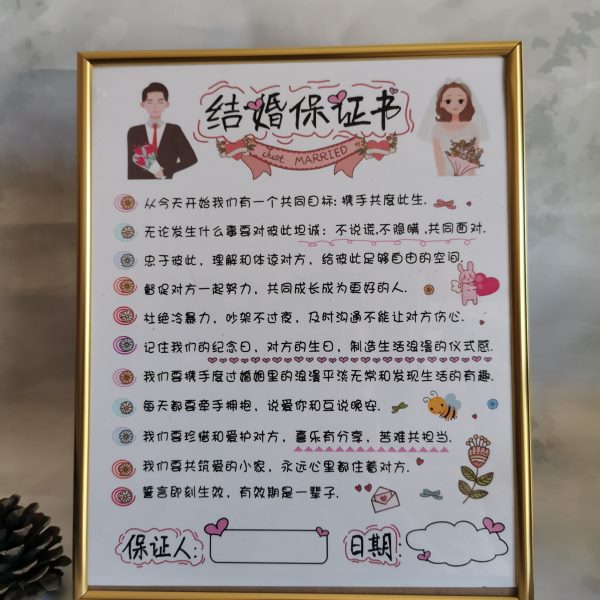 结婚保证书
Just MARRIED
从今天开始我们有一个共同目标:携手共度此生.
无论发生什么事喜对彼此坦诚:不说谎,不隐瞒,共同面对.
忠于彼此,理解和体谅对方,给彼此足够自由的空间.
督促对方一起努力,共同成长成为更好的人.
杜绝冷暴力,吵架不过夜,及时沟通不能让对方伤心.
记住我们的纪念日,对方的生日,制造生活浪漫的仪式感.
我们要携手度过婚姻里的浪漫平淡无常和发现生活的有趣.
每天都要牵手拥抱,说爱你和互说晚安.
我们要珍惜和爱护对方,喜乐有分享,苦难共担当.
我们要共筑爱的小家,永远心里都住着对方.
誓言即刻生效,有效期是一辈子.
保证人: 日期: